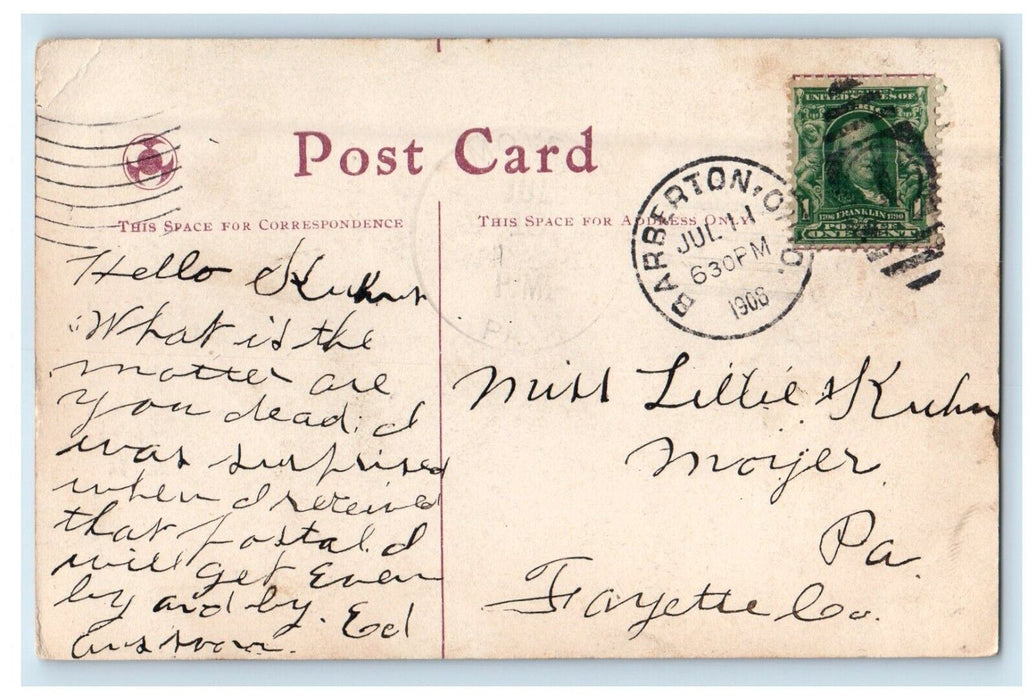 Post Card
THIS SPACE FOR CORRESPONDENCE
THIS SPACE FOR ADDRESS ONLY
BARBERTON, O
JUL 11
630PM
1906
UNITED STATES OF
1 1
1706 FRANKLIN 1790
POSTAGE
ONE CENT
Hello Kuhn
What is the
matter are
you dead. I
was surprised
when I received
that postal. I
will get even
by and by. Ed
Miss Lillie Kuhn
Moyer
Pa.
Fayette Co.